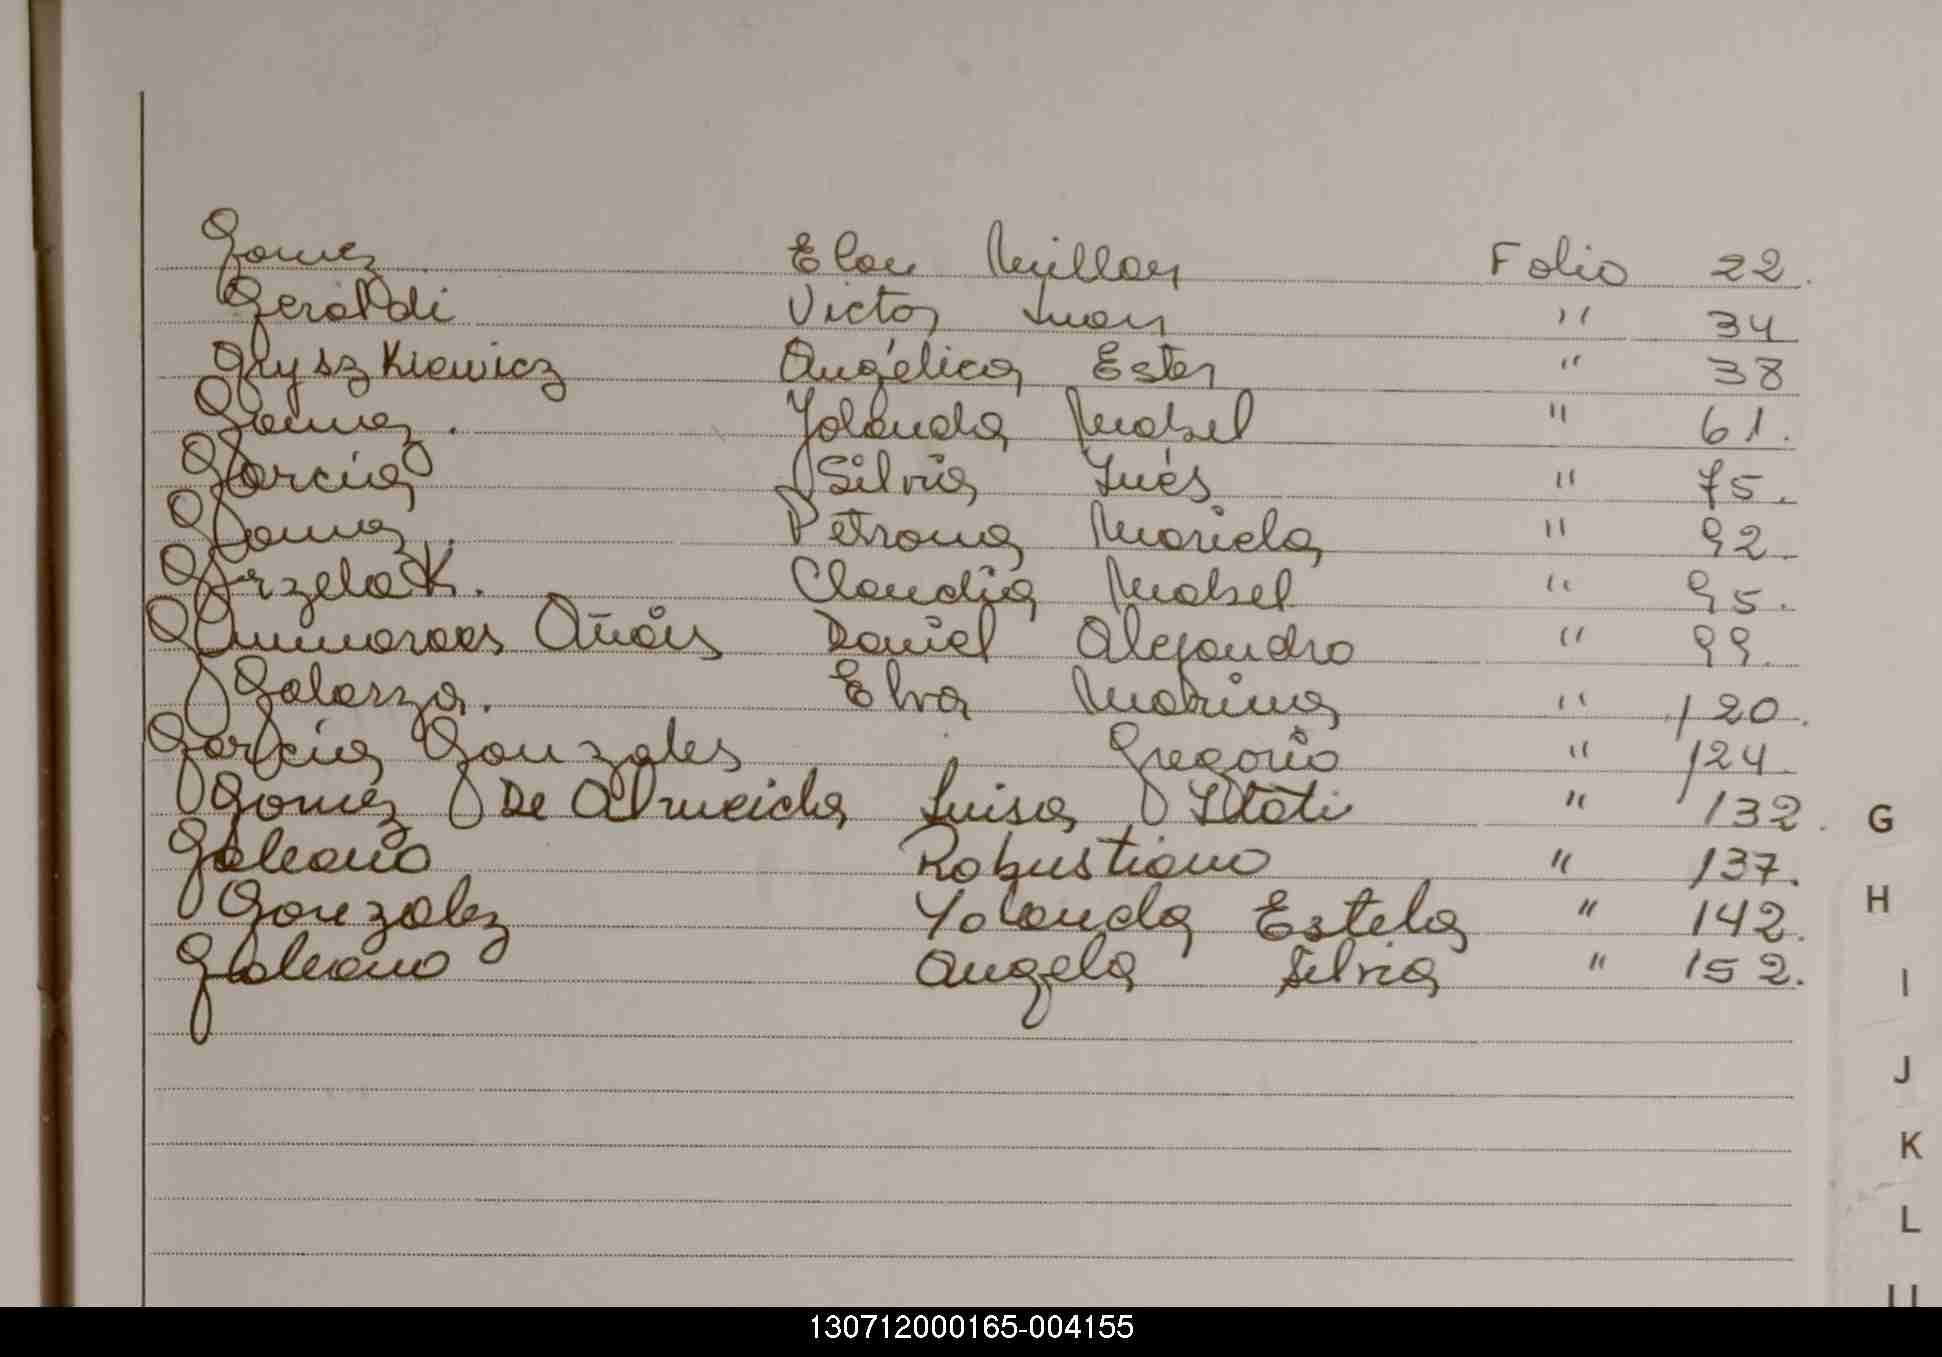 Gomez Elou Millan Folio 22.
Geraldi Victor Juan " 34
Gryszkiewicz Angélica Ester " 38
Gomez. Yolanda Mabel " 61.
Garcia Silvia Inés " 75.
Gomez. Petrona Mariela " 92.
Grzelak. Claudia Mabel " 95.
Añais Daniel Alejandro " 99.
Galarza. Elva Marina " 120.
Garcia Gonzales Gregorio " 124
Gomez De Almeida Luisa Itati " 132.
Galeano Robustiano " 137.
Gonzalez Yolanda Estela " 142.
Galeano Angela Silvia " 152.
G
H
I
J
K
L
130712000165-004155